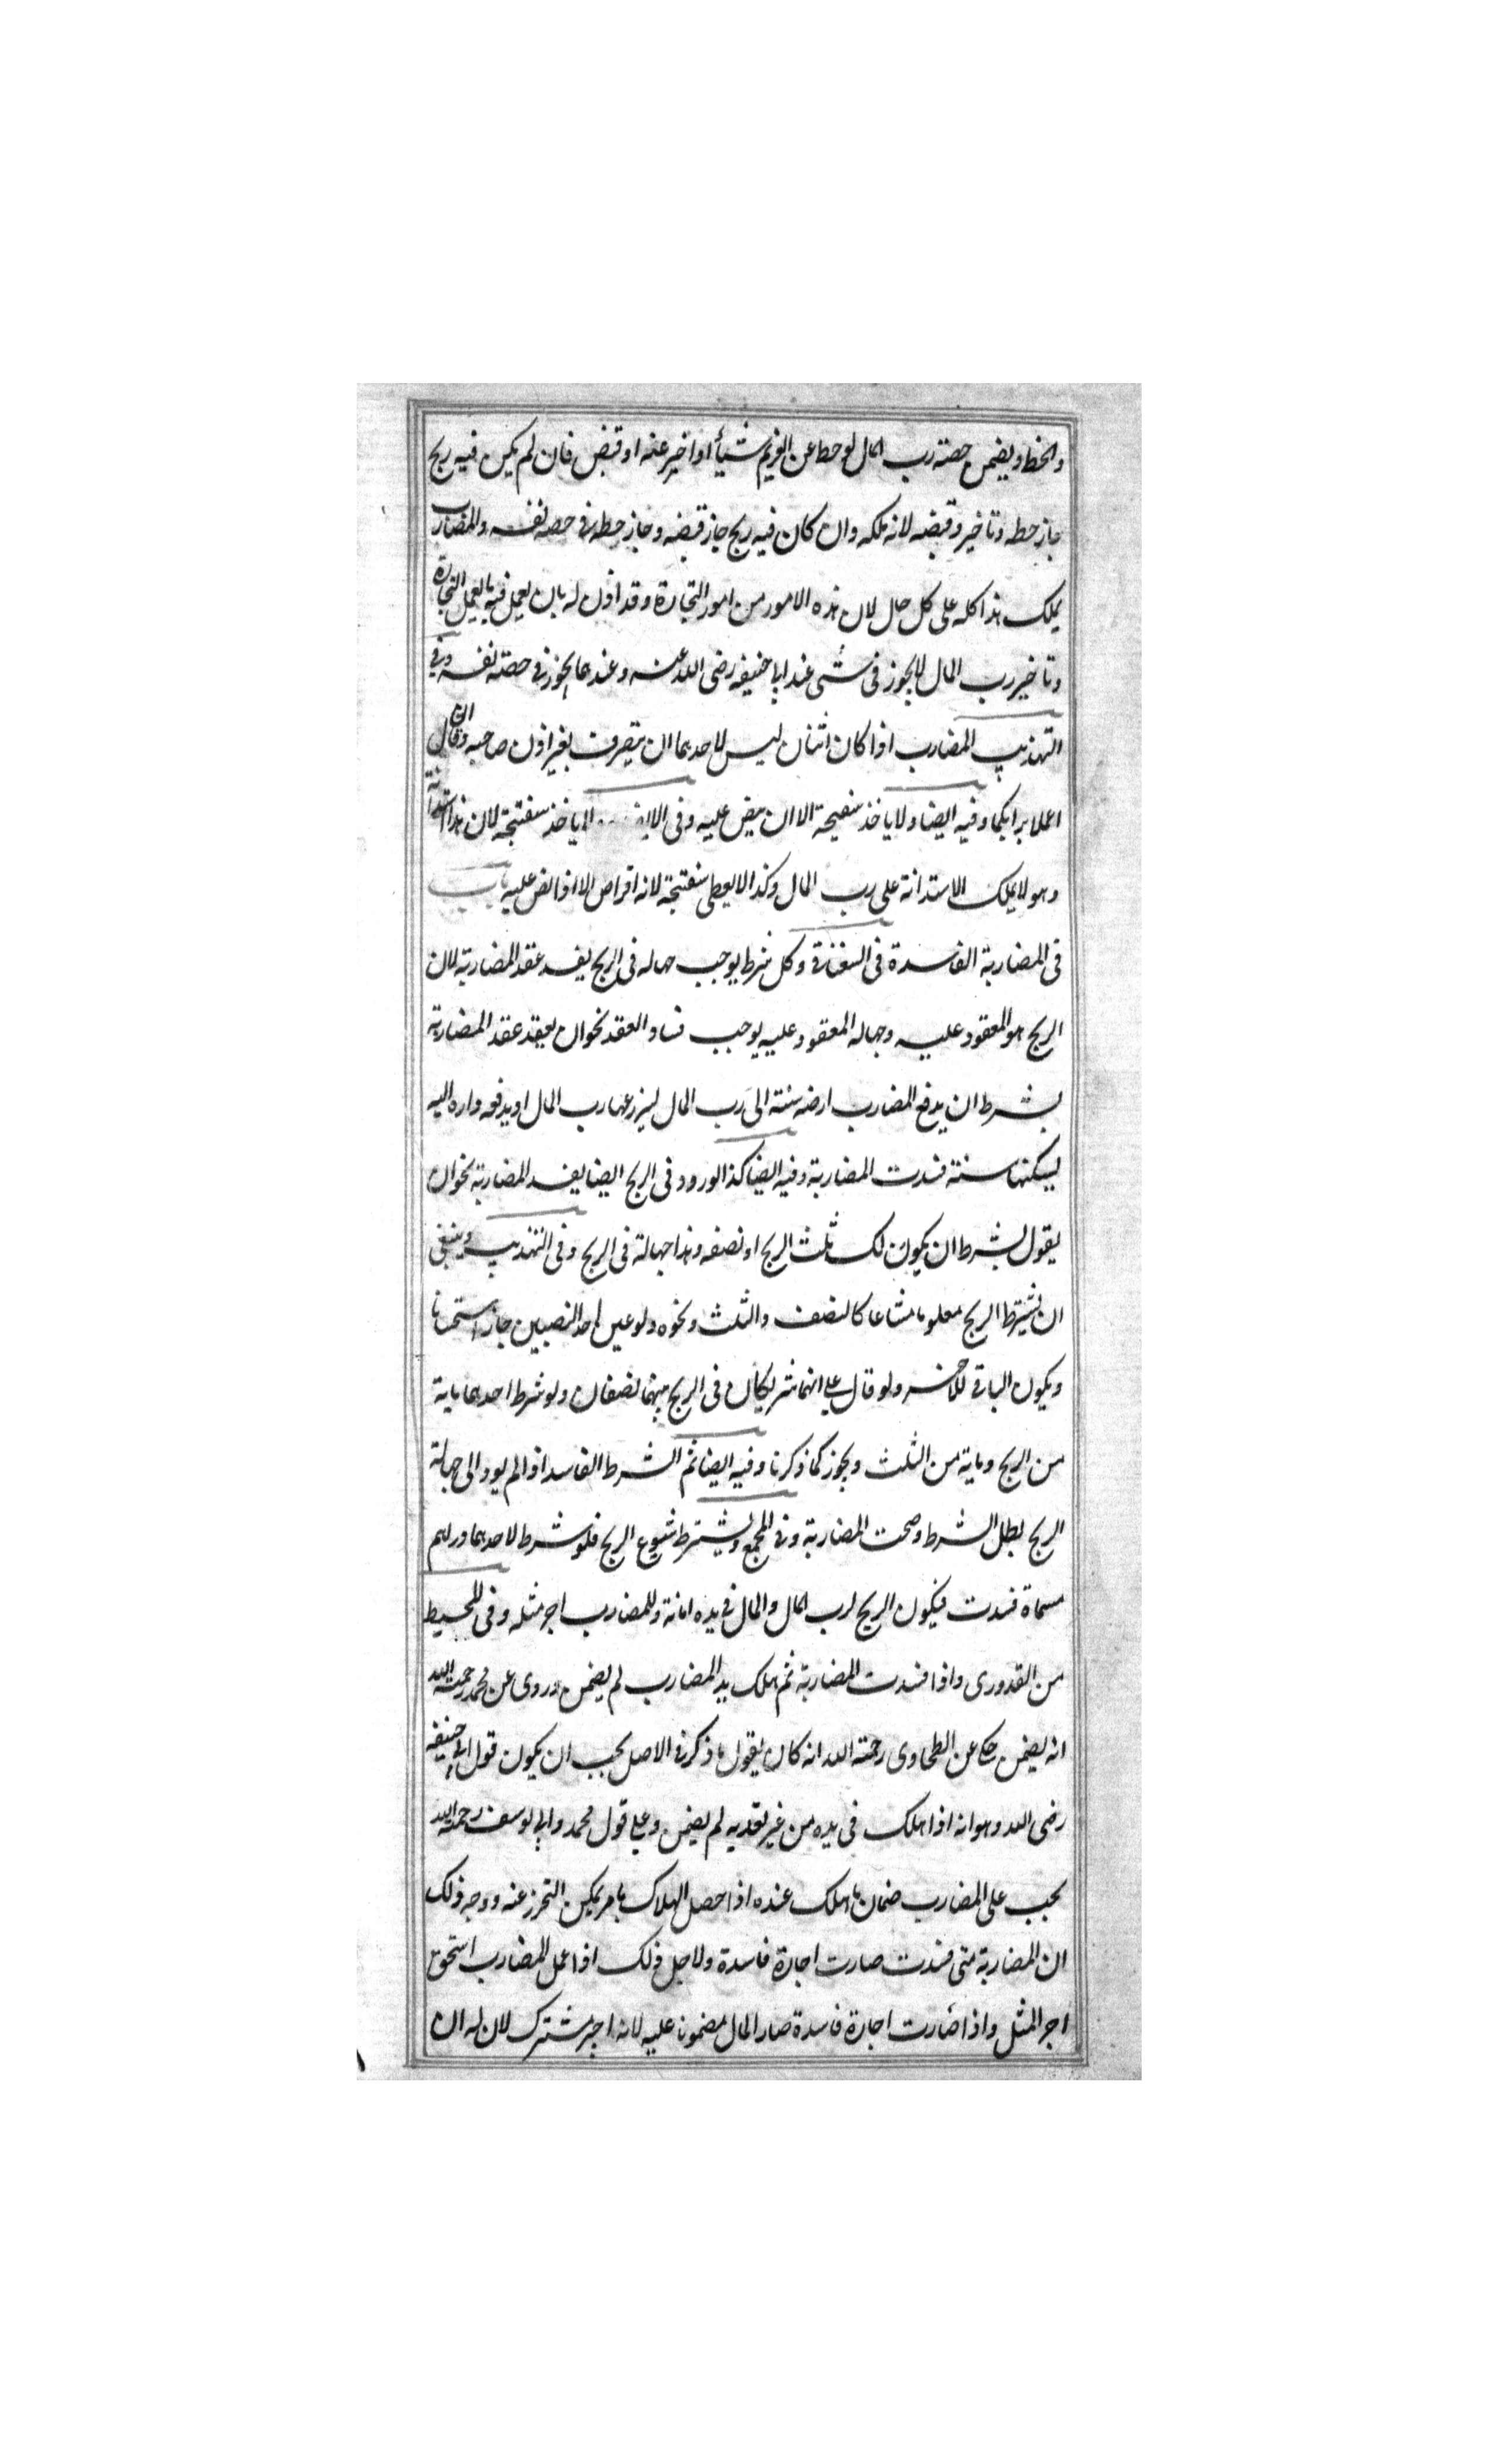 والحط ويضمن حصته رب المال لو حط عن الغريم شيأ او اخير عنه او قبض فان لم يكن فيه ربح
جاز حطه وتاخير وقبضه لانه ملكه وان كان فيه ربح جاز قبضه وجاز حطه في حصه نفسه والمضارب
يملك هذا كله على كل حال لان هذه الامور من امور التجارة وقد اذن له بان يعمل فيه بالعمل التجارة
وتاخير رب المال لا يجوز في شى عند ابا حنيفه رضى الله عنه وعندهما يجوز في حصته نفسه وفي
التهذيب المضارب اذا كان اثنان ليس لاحدهما ان يتصرف بغير اذن صاحبه وان قال
اعملا برايكما وفيه ايضا ولا ياخذ سفيحة الا ان ينص عليه وفى لا ياخذ سفتجة لان هذا استدانة
وهو لا يملك الاستدانة على رب المال وكذا لا يعطى سفتجة لانه اقراض الا اذا نص عليه باب
فى المضاربة الفاسدة فى السغناقي وكل شرط يوجب جهاله فى الربح يفسد عقد المضاربة لان
الربح هو المعقود عليه وجهاله المعقود عليه يوجب فساد العقد نحو ان يعقد عقد المضاربة
بشرط ان يدفع المضارب ارضه سنته الى رب المال ليزرعها رب المال او يدفعه داره اليه
ليسكنها سنته فسدت المضاربة وفيه ايضا كذا لو ردد فى الربح ايضا يفسد المضاربة نحو ان
يقول بشرط ان يكون لك ثلث الربح او نصفه وهذا جهالة فى الربح وفى التهذيب وينبغى
ان يشترط الربح معلوما مشاعا كالنصف والثلث ونحوه ولو عين احد النصيبين جاز استحسانا
ويكون الباقي للآخر ولو قال على انهما شريكان فى الربح بينهما نصفان ولو شرط احدهما ماية
من الربح وماية من الثلث ويجوز كما ذكرنا وفيه ايضا ثم الشرط الفاسد اذا لم يود الى جهالة
الربح بطل الشرط وصحت المضاربة وفي المجمع ويشترط شيوع الربح فلو شرط لاحدهما دراهم
مسماة فسدت فيكون الربح لرب المال والمال في يده امانة وللمضارب اجر مثله وفى المحيط
من القدورى واذا فسدت المضاربة ثم هلك بيد المضارب لم يضمن وروى عن محمد رحمته الله
انه يضمن حكى عن الطحاوى رحمته الله انه كان يقول ما ذكر في الاصل يجب ان يكون قول ابى حنيفه
رضى الله وهو انه اذا هلك فى يده من غير تعديه لم يضمن وعلى قول محمد وابى يوسف رحمها الله
يجب على المضارب ضمان ما هلك عنده اذا حصل الهلاك بامر يمكن التحرز عنه ووجه ذلك
ان المضاربة متى فسدت صارت اجارة فاسدة ولاجل ذلك اذا عمل المضارب استحق
اجر المثل واذا صارت اجارة فاسدة صار المال مضمونا عليه لانه اجير مشترك لان له ان